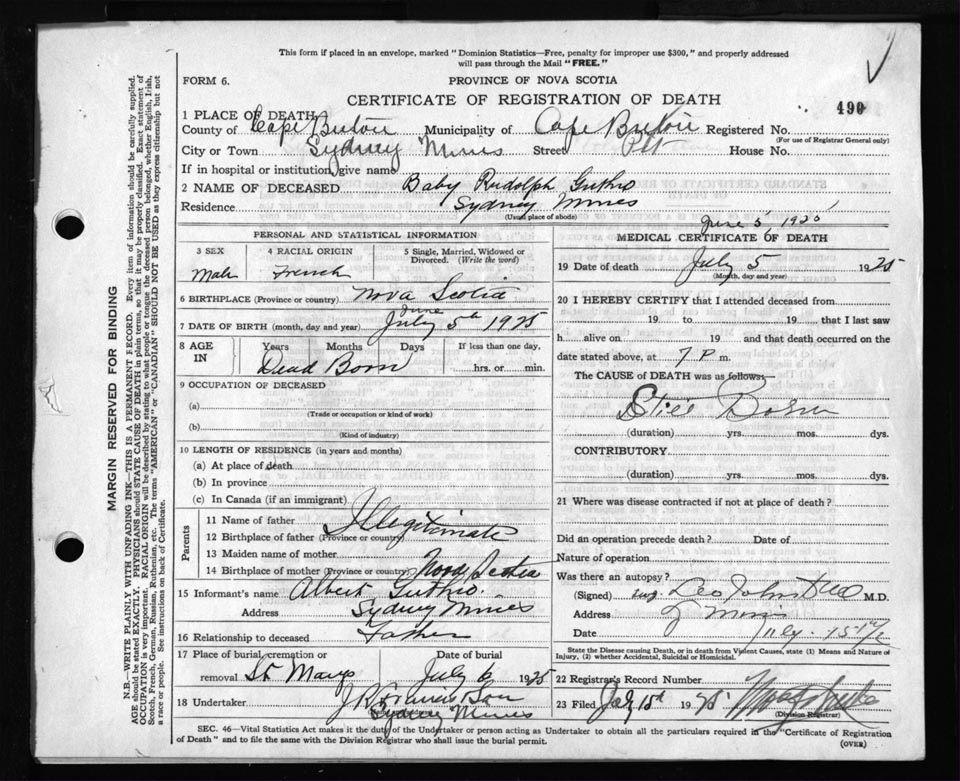 This form if placed in an envelope, marked "Dominion Statistics—Free, penalty for improper use $300," and properly addressed
will pass through the Mail "FREE."
FORM 6.
PROVINCE OF NOVA SCOTIA
CERTIFICATE OF REGISTRATION OF DEATH
490
1 PLACE OF DEATH
County of Cape Breton Municipality of Cape Breton Registered No.
(For use of Registrar General only)
City or Town Sydney Mines Street Pitt House No.
If in hospital or institution, give name
2 NAME OF DECEASED Baby Rudolph Guthro
Residence Sydney Mines
(Usual place of abode)
June 5, 1925
PERSONAL AND STATISTICAL INFORMATION
3 SEX
Male
4 RACIAL ORIGIN
French
5 Single, Married, Widowed or
Divorced. (Write the word)
6 BIRTHPLACE (Province or country) Nova Scotia
June
7 DATE OF BIRTH (month, day and year) July 5th 1925
8 AGE IN Years Months Days
Dead Born
If less than one day,
hrs. or min.
9 OCCUPATION OF DECEASED
(a)
(Trade or occupation or kind of work)
(b)
(Kind of industry)
10 LENGTH OF RESIDENCE (in years and months)
(a) At place of death
(b) In province
(c) In Canada (if an immigrant)
Parents
11 Name of father
Illegitimate
12 Birthplace of father (Province or country)
13 Maiden name of mother
14 Birthplace of mother (Province or country) Nova Scotia
15 Informant's name Albert Guthro.
Address Sydney Mines
16 Relationship to deceased Father
17 Place of burial, cremation or
removal St Marys
Date of burial
July 6 1925
18 Undertaker
Sydney Mines
MEDICAL CERTIFICATE OF DEATH
19 Date of death July 5 1925
(Month, day and year)
20 I HEREBY CERTIFY that I attended deceased from
19 to 19 that I last saw
h alive on 19 and that death occurred on the
date stated above, at 7 P m.
The CAUSE of DEATH was as follows:
Still Born
(duration) yrs. mos. dys.
CONTRIBUTORY
(duration) yrs. mos. dys.
21 Where was disease contracted if not at place of death?
Did an operation precede death? Date of
Nature of operation
Was there an autopsy?
(Signed) M.D.
Address Mines
Date July 15
State the Disease causing Death, or in death from Violent Causes, state (1) Means and Nature of
Injury, (2) whether Accidental, Suicidal or Homicidal.
22 Registrar's Record Number
23 Filed July 15th 1925
(Division Registrar)
SEC. 46—Vital Statistics Act makes it the duty of the Undertaker or person acting as Undertaker to obtain all the particulars required in the "Certificate of Registration
of Death" and to file the same with the Division Registrar who shall issue the burial permit.
(OVER)
MARGIN RESERVED FOR BINDING
N.B.—WRITE PLAINLY WITH UNFADING INK—THIS IS A PERMANENT RECORD. Every item of information should be carefully supplied.
AGE should be stated EXACTLY. PHYSICIANS should STATE CAUSE OF DEATH in plain terms, so that it may be properly classified. Exact statement of
OCCUPATION is very important. RACIAL ORIGIN will be described by stating to what people or tongue the deceased person belonged, whether English, Irish,
Scotch, French, German, Russian, Ruthenian, etc. The terms "AMERICAN" or "CANADIAN" SHOULD NOT BE USED as they express citizenship but not
a race or people. See instructions on back of Certificate.